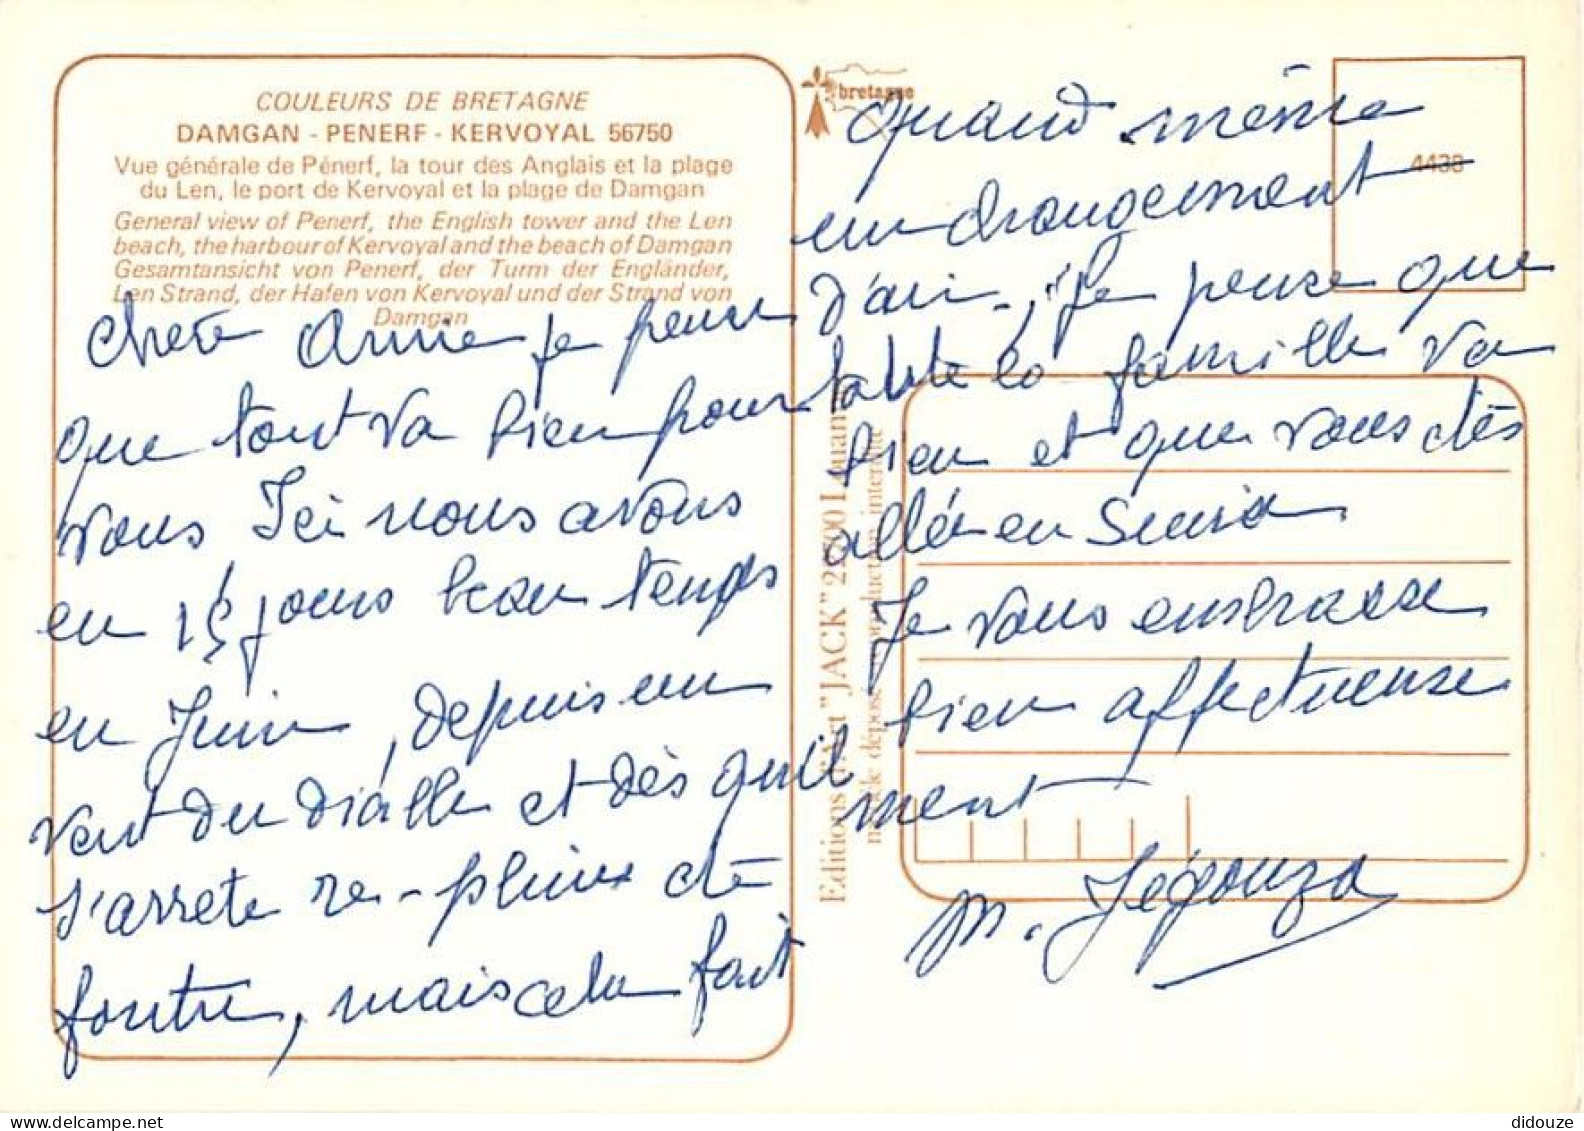 COULEURS DE BRETAGNE
DAMGAN - PENERF - KERVOYAL 56750
Vue générale de Pénerf, la tour des Anglais et la plage
du Len, le port de Kervoyal et la plage de Damgan
General view of Penerf, the English tower and the Len
beach, the harbour of Kervoyal and the beach of Damgan
Gesamtansicht von Penerf, der Turm der Engländer,
Len Strand, der Hafen von Kervoyal und der Strand von
Damgan
Chere Annie je pense
que tout va bien pour
vous Ici nous avons
eu 15 jours beau temps
en Juin, depuis un
vent du diable et dès qu'il
s'arrete re-pleine
foutu, mais cela fait
bretagne
4438
quand même
un changement
d'air, Je pense que
la famille va
bien et que vous êtes
allée en Suisse
Je vous embrasse
bien affectueuse
ment
M. Jégouzo
Editions d'Art "JACK" 22 Louannec
modèle déposé reproduction interdite
didouze
delcampe.net